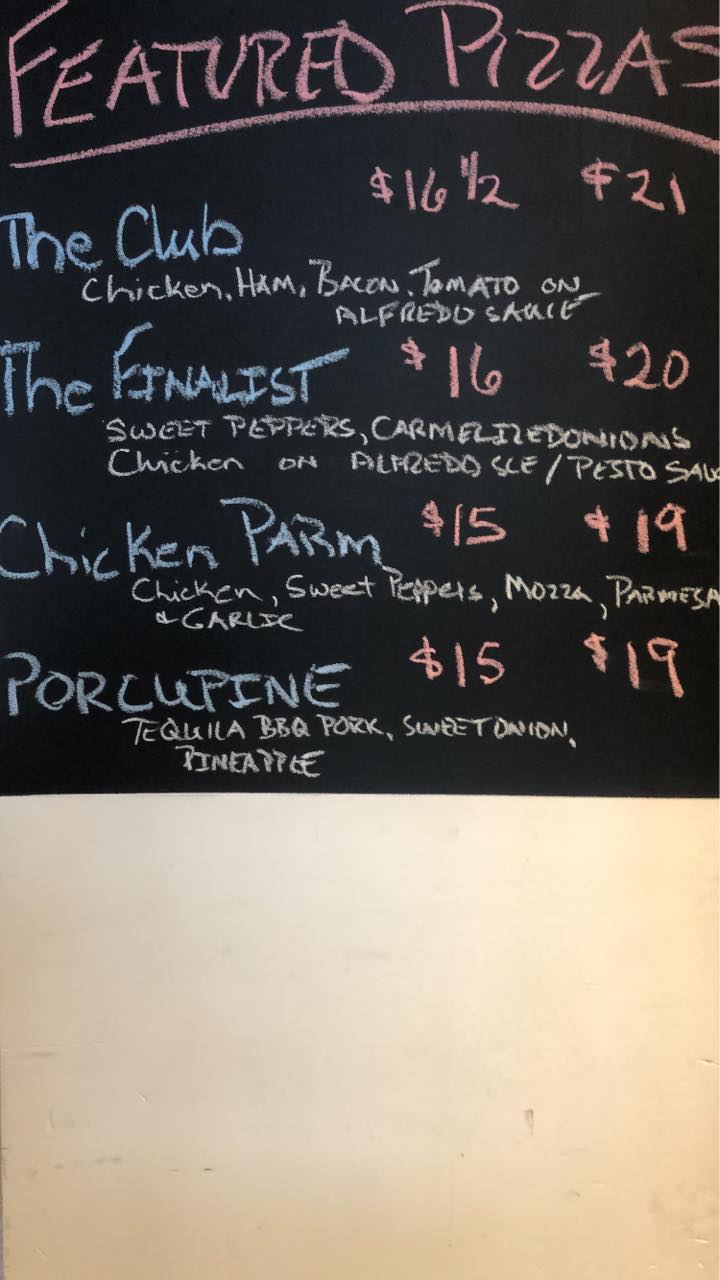 FEATURED PIZZAS
$16 1/2 $21
The Club
Chicken, HAM, BACON, TOMATO ON
ALFREDO SAUCE
The FINALIST $16 $20
SWEET PEPPERS, CARMELIZED ONIONS
Chicken ON ALFREDO SCE / PESTO SAUC
Chicken PARM $15 $19
Chicken, Sweet Peppers, Mozza, PARMESA
& GARLIC
PORCUPINE $15 $19
TEQUILA BBQ PORK, SWEET ONION,
PINEAPPLE